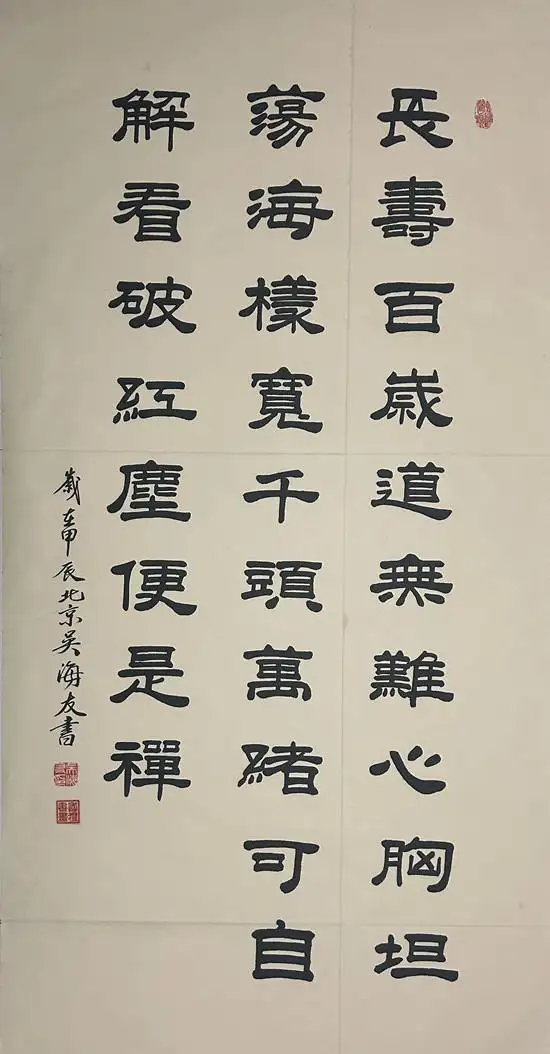 長壽百歲道無難心胸坦
蕩海樣寬千頭萬緒可自
解看破紅塵便是禪
歲在甲辰北京吴海友書